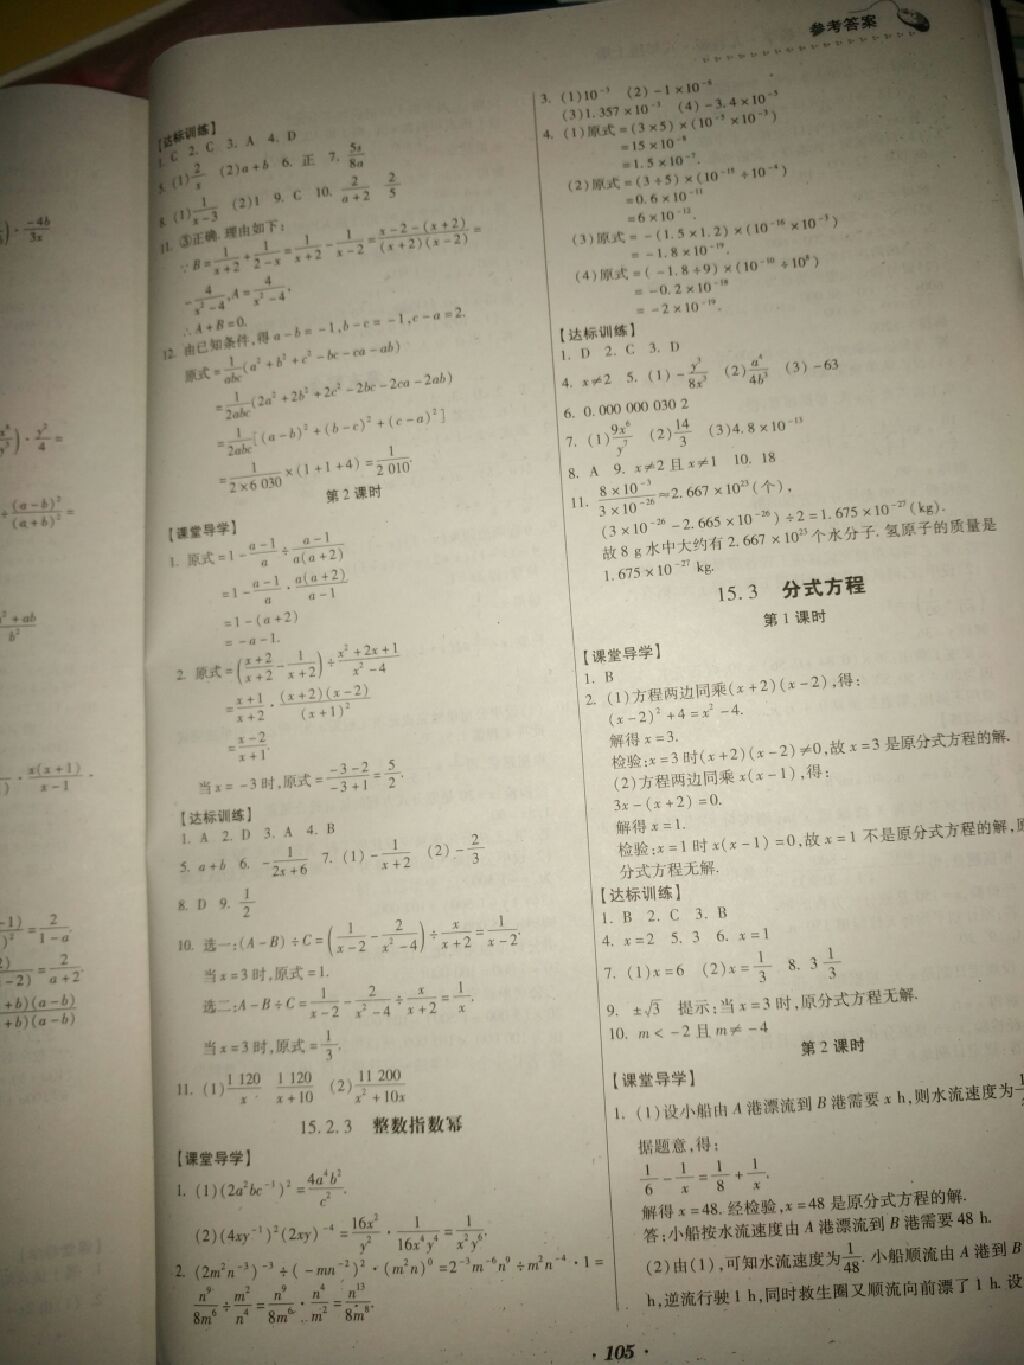 参考答案
-4b/3x
y²/4 =
÷ (a-b)²/(a+b)² =
+ab/b²
· x(x+1)/x-1 .
= 2/1-a
= 2/a+2
+b)(a-b)
+b)(a-b)
【达标训练】
1. C 2. C 3. A 4. D
5. (1) 2/x (2)a+b 6. 正 7. 5s/8a
8. (1) 1/x-3 (2)1 9. C 10. 2/a+2 2/5
11. ③正确. 理由如下:
∵B= 1/x+2 + 1/2-x = 1/x+2 - 1/x-2 = x-2-(x+2)/(x+2)(x-2) =
- 4/x²-4 , A= 4/x²-4 .
∴A+B=0.
12. 由已知条件,得a-b=-1,b-c=-1,c-a=2.
原式= 1/abc (a²+b²+c²-bc-ca-ab)
= 1/2abc (2a²+2b²+2c²-2bc-2ca-2ab)
= 1/2abc [(a-b)²+(b-c)²+(c-a)²]
= 1/2×6 030 ×(1+1+4)= 1/2 010 .
第2课时
【课堂导学】
1. 原式=1- a-1/a ÷ a-1/a(a+2)
=1- a-1/a · a(a+2)/a-1
=1-(a+2)
=-a-1.
2. 原式=( x+2/x+2 - 1/x+2 )÷ x²+2x+1/x²-4
= x+1/x+2 · (x+2)(x-2)/(x+1)²
= x-2/x+1 .
当x=-3时,原式= -3-2/-3+1 = 5/2 .
【达标训练】
1. A 2. D 3. A 4. B
5. a+b 6. - 1/2x+6 7. (1)- 1/x+2 (2)- 2/3
8. D 9. 1/2
10. 选一:(A-B)÷C=( 1/x-2 - 2/x²-4 )÷ x/x+2 = 1/x-2 .
当x=3时,原式=1.
选二:A-B÷C= 1/x-2 - 2/x²-4 ÷ x/x+2 = 1/x .
当x=3时,原式= 1/3 .
11. (1) 1 120/x 1 120/x+10 (2) 11 200/x²+10x
15.2.3 整数指数幂
【课堂导学】
1. (1)(2a²bc⁻¹)²= 4a⁴b²/c² .
(2)(4xy⁻¹)²(2xy)⁻⁴= 16x²/y² · 1/16x⁴y⁴ = 1/x²y⁶ .
2. (2m²n⁻³)⁻³÷(-mn⁻²)²·(m²n)⁰=2⁻³m⁻⁶n⁹÷m²n⁻⁴·1=
n⁹/8m⁶ ÷ m²/n⁴ = n⁹/8m⁶ · n⁴/m² = n¹³/8m⁸ .
3. (1)10⁻⁵ (2)-1×10⁻⁴
(3)1.357×10⁻³ (4)-3.4×10⁻⁵
4. (1)原式=(3×5)×(10⁻⁵×10⁻³)
=15×10⁻⁸
=1.5×10⁻⁷.
(2)原式=(3÷5)×(10⁻¹⁵÷10⁻⁴)
=0.6×10⁻¹¹
=6×10⁻¹².
(3)原式=-(1.5×1.2)×(10⁻¹⁶×10⁻³)
=-1.8×10⁻¹⁹.
(4)原式=(-1.8÷9)×(10⁻¹⁰÷10⁸)
=-0.2×10⁻¹⁸
=-2×10⁻¹⁹.
【达标训练】
1. D 2. C 3. D
4. x≠2 5. (1)- y³/8x³ (2) a⁴/4b³ (3)-63
6. 0.000 000 030 2
7. (1) 9x⁶/y⁷ (2) 14/3 (3)4.8×10⁻¹³
8. A 9. x≠2且x≠1 10. 18
11. 8×10⁻³/3×10⁻²⁶ ≈2.667×10²³(个),
(3×10⁻²⁶-2.665×10⁻²⁶)÷2=1.675×10⁻²⁷(kg).
故8 g水中大约有2.667×10²³个水分子. 氢原子的质量是
1.675×10⁻²⁷ kg.
15.3 分式方程
第1课时
【课堂导学】
1. B
2. (1)方程两边同乘(x+2)(x-2),得:
(x-2)²+4=x²-4.
解得x=3.
检验:x=3时(x+2)(x-2)≠0,故x=3是原分式方程的解.
(2)方程两边同乘x(x-1),得:
3x-(x+2)=0.
解得x=1.
检验:x=1时x(x-1)=0,故x=1不是原分式方程的解,原
分式方程无解.
【达标训练】
1. B 2. C 3. B
4. x=2 5. 3 6. x=1
7. (1)x=6 (2)x= 1/3 8. 3 1/3
9. ±√3 提示:当x=3时,原分式方程无解.
10. m<-2且m≠-4
第2课时
【课堂导学】
1. (1)设小船由A港漂流到B港需要x h,则水流速度为
据题意,得:
1/6 - 1/x = 1/8 + 1/x .
解得x=48. 经检验,x=48是原分式方程的解.
答:小船按水流速度由A港漂流到B港需要48 h.
(2)由(1),可知水流速度为 1/48 . 小船顺流由A港到B
h,逆流行驶1 h,同时救生圈又顺流向前漂了1 h. 设
· 105 ·